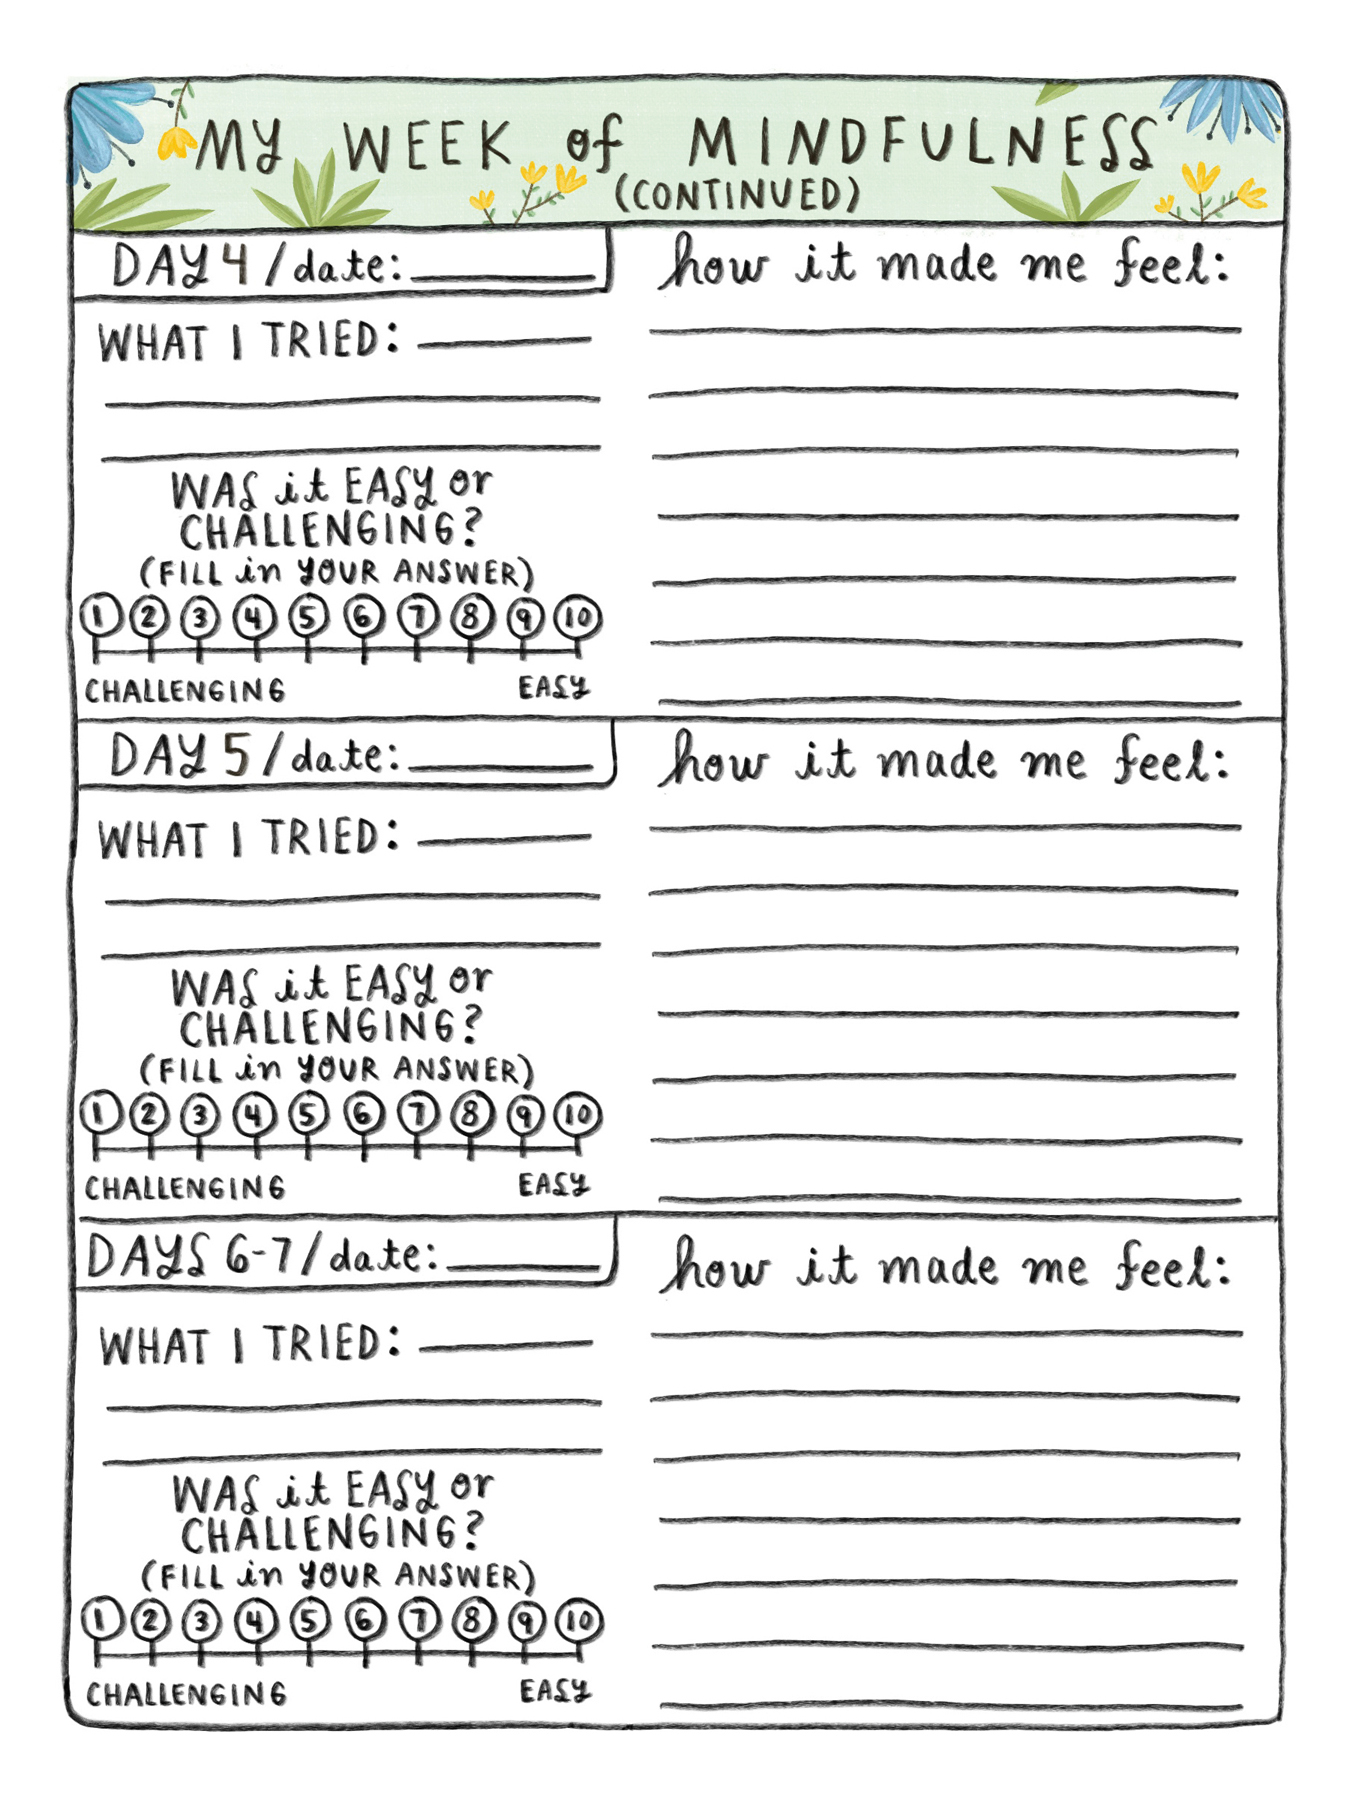 MY WEEK of MINDFULNESS
(CONTINUED)
DAY 4 / date:
WHAT I TRIED:
WAS it EASY or
CHALLENGING?
(FILL in YOUR ANSWER)
1 2 3 4 5 6 7 8 9 10
CHALLENGING EASY
how it made me feel:
DAY 5 / date:
WHAT I TRIED:
WAS it EASY or
CHALLENGING?
(FILL in YOUR ANSWER)
1 2 3 4 5 6 7 8 9 10
CHALLENGING EASY
how it made me feel:
DAYS 6-7 / date:
WHAT I TRIED:
WAS it EASY or
CHALLENGING?
(FILL in YOUR ANSWER)
1 2 3 4 5 6 7 8 9 10
CHALLENGING EASY
how it made me feel: